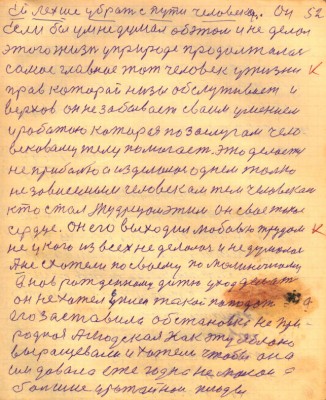 ей легше убрать с пути человека. Он 52
если бы и умнедумал обэтом и не делал
этого жизн уприроде продолжалас
самое главное тот человек ужизни
прав которай низы обслуживает и
верхов он незабывает своим умением
и работаю которая позаслугам чело-
вековому телу помогает. Это делаетс
не прибылю а изделалос однем толко
независемым человекам тем человекам
кто стал Мудрецом этим он свае такое
сердце. Он его выходил любовью трудом
не укого из всех не делалос и недумалос
Ане схотели посвоему помалинкаму
Ановрожденному дитю уход делат
он нехотел у них такой
его заставила обстановка не при-
родная Алюдская Как ту яблоню
выращевали и хотели чтобы она
им давала еже годно не малое
болшие урожайнои плоды